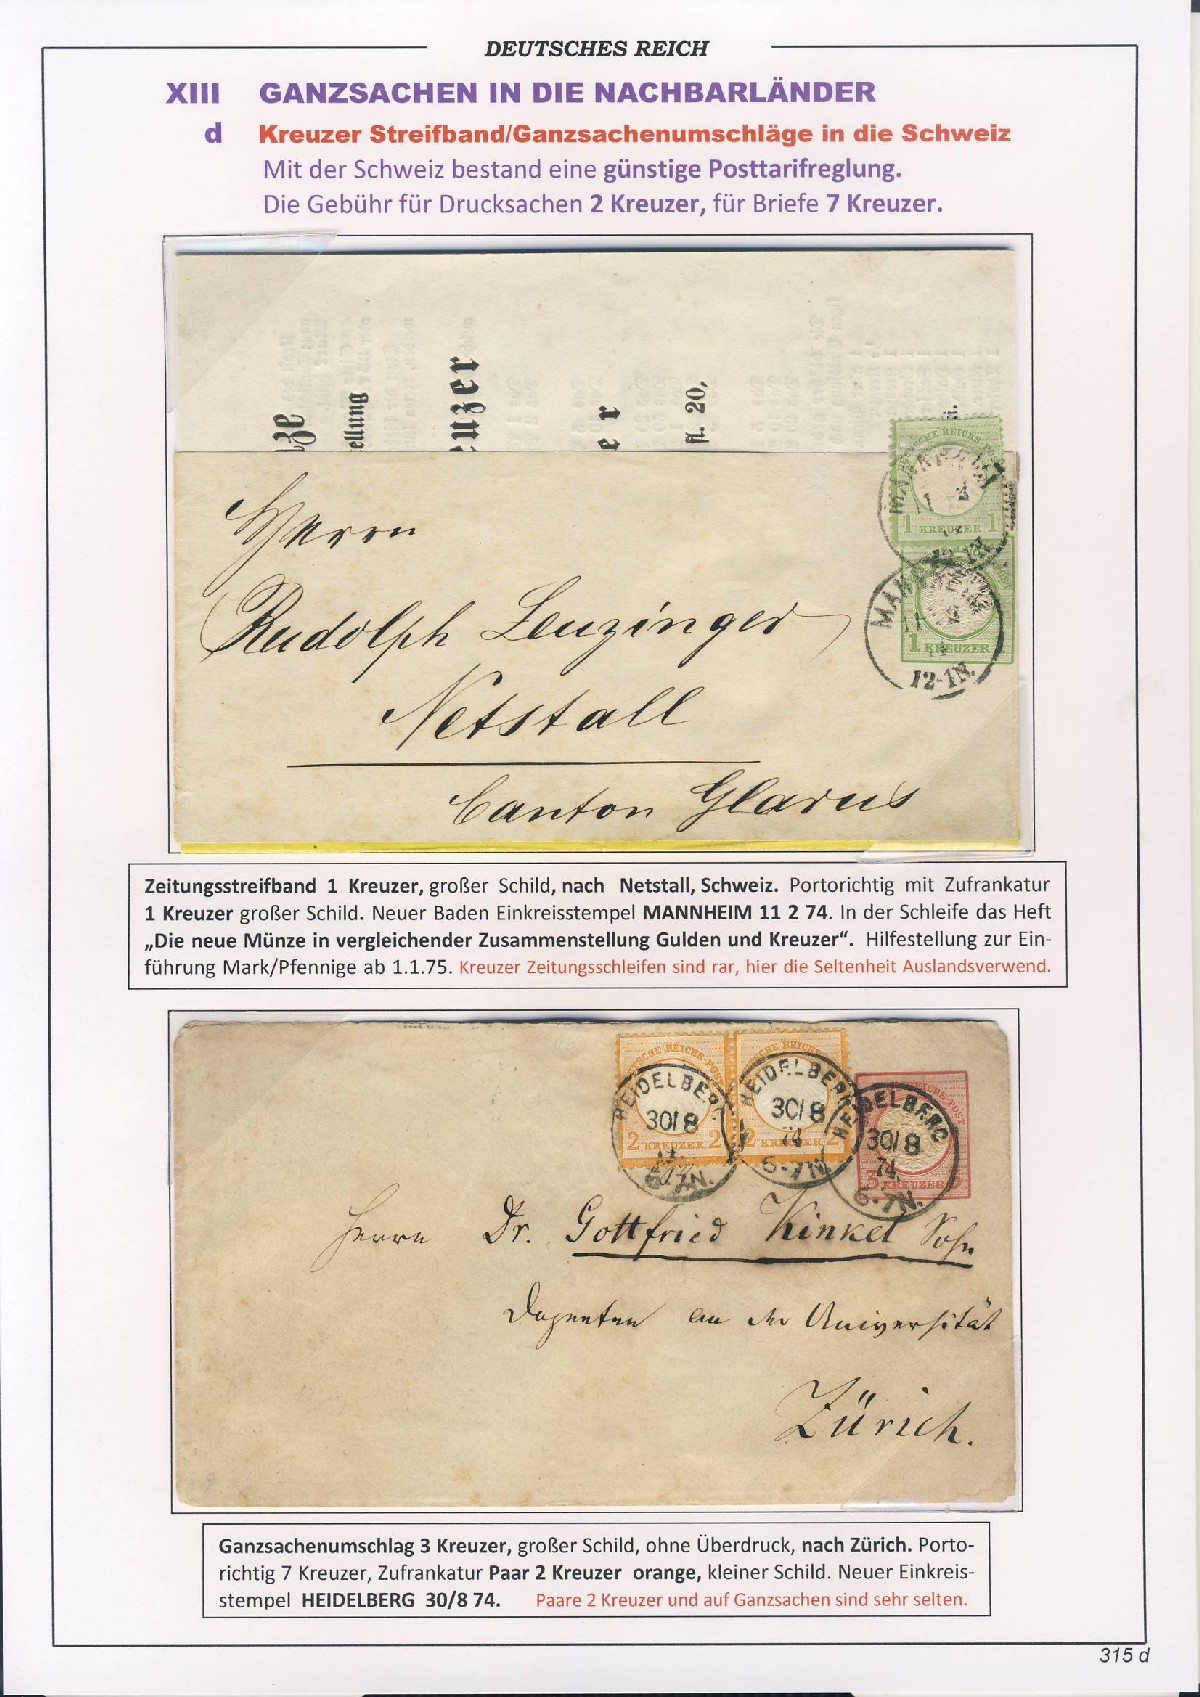 DEUTSCHES REICH
XIII GANZSACHEN IN DIE NACHBARLÄNDER
d Kreuzer Streifband/Ganzsachenumschläge in die Schweiz
Mit der Schweiz bestand eine günstige Posttarifreglung.
Die Gebühr für Drucksachen 2 Kreuzer, für Briefe 7 Kreuzer.
ze
ellung
euzer
er
fl. 20,
1 KREUZER 1
MANNHEIM
12-1N.
1 KREUZER
Herrn
Rudolph Leuzinger
Netstall
Canton Glarus
Zeitungsstreifband 1 Kreuzer, großer Schild, nach Netstall, Schweiz. Portorichtig mit Zufrankatur
1 Kreuzer großer Schild. Neuer Baden Einkreisstempel MANNHEIM 11 2 74. In der Schleife das Heft
„Die neue Münze in vergleichender Zusammenstellung Gulden und Kreuzer“. Hilfestellung zur Ein-
führung Mark/Pfennige ab 1.1.75. Kreuzer Zeitungsschleifen sind rar, hier die Seltenheit Auslandsverwend.
HEIDELBERG
30/8
2 KREUZER 2
HEIDELBERG
30/8
74
6-7N
2 KREUZER 2
HEIDELBERG
30/8
74.
6-7N.
3 KREUZER 3
Herrn Dr. Gottfried Kinkel Sohn
Dozenten an der Universität
Zürich.
Ganzsachenumschlag 3 Kreuzer, großer Schild, ohne Überdruck, nach Zürich. Porto-
richtig 7 Kreuzer, Zufrankatur Paar 2 Kreuzer orange, kleiner Schild. Neuer Einkreis-
stempel HEIDELBERG 30/8 74. Paare 2 Kreuzer und auf Ganzsachen sind sehr selten.
315 d